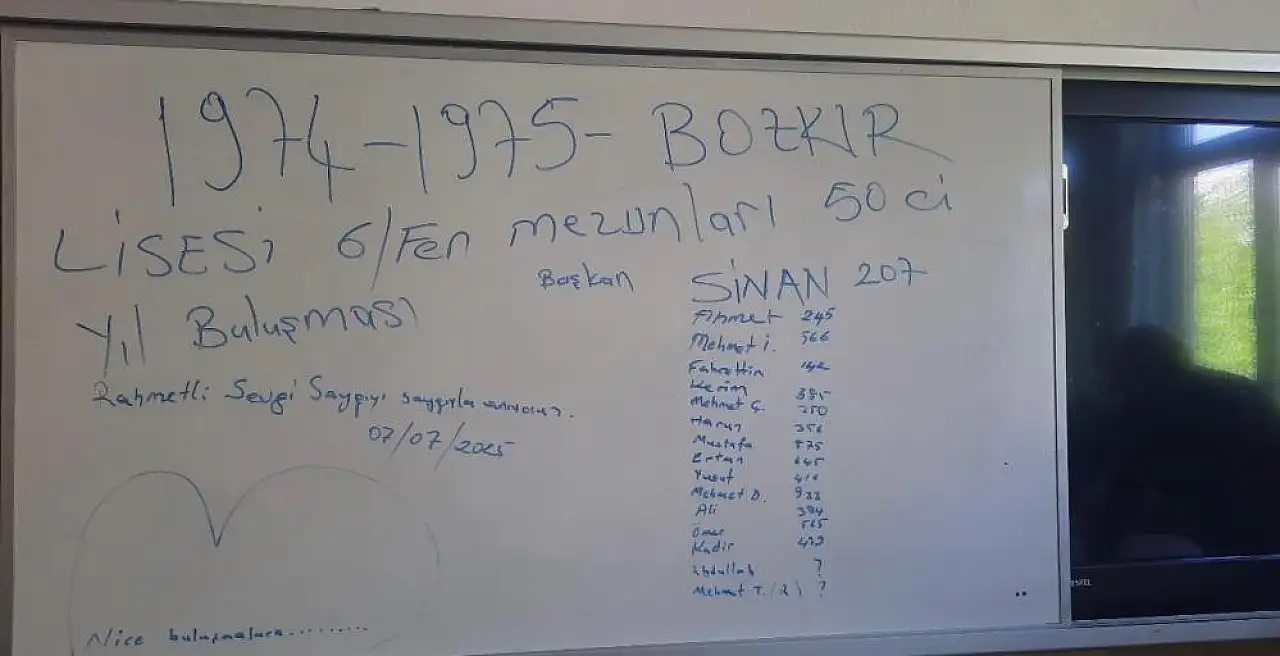 1974-1975- BOZKIR
LİSESİ 6/Fen mezunları 50 ci
Yıl Buluşması
Rahmetli Sevgi Saygıyı saygıyla anıyoruz.
07/07/2025
Nice buluşmalara.........
Başkan SİNAN 207
Ahmet 245
Mehmet İ. 566
Fahrettin
Kerim 385
Mehmet Ç. 250
Harun
Mustafa 875
Ertan 645
Yusuf
Mehmet D.
Ali 394
Ömer 565
Kadir
Abdullah ?
Mehmet T. (2) ?